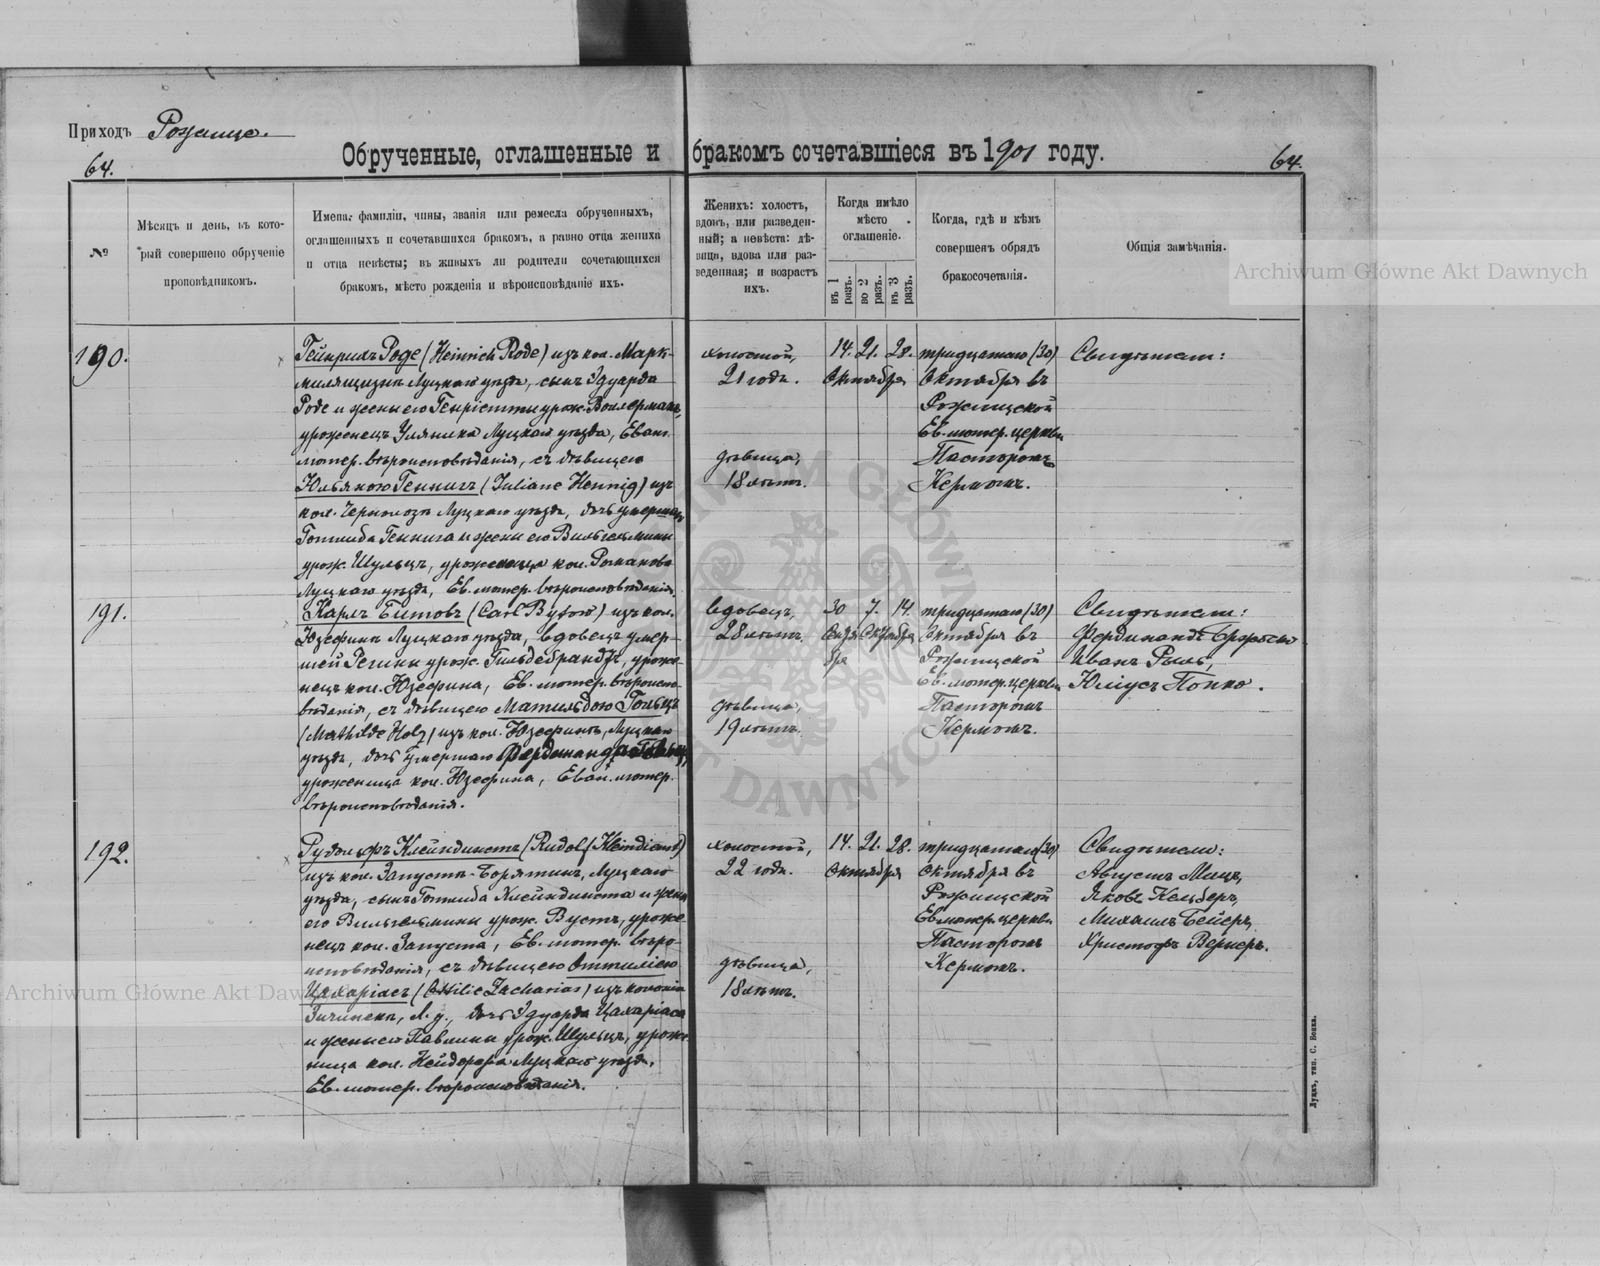 Приходъ Рожище.
64.
Обрученные, оглашенные и бракомъ сочетавшіеся въ 1901 году.
64.
№
Мѣсяцъ и день, въ кото-
рый совершено обрученіе
проповѣдникомъ.
Имена, фамиліи, чины, званія или ремесла обрученныхъ,
оглашенныхъ и сочетавшихся бракомъ, а равно отца жениха
и отца невѣсты; въ живыхъ ли родители сочетающихся
бракомъ, мѣсто рожденія и вѣроисповѣданіе ихъ.
Женихъ: холостъ,
вдовъ, или разведен-
ный; а невѣста: дѣ-
вица, вдова или раз-
веденная; и возрастъ
ихъ.
Когда имѣло
мѣсто
оглашеніе.
въ 1 разъ.
во 2 разъ.
въ 3 разъ.
Когда, гдѣ и кѣмъ
совершенъ обрядъ
бракосочетанія.
Общія замѣчанія.
190.
Гейнрихъ Роде (Heinrich Rode) изъ кол.
Луцкаго уѣзда, сынъ Эдуарда
Роде и жены его Генріетты урож.
уроженецъ Уляника Луцкаго уѣзда, Еван.
лютер. вѣроисповѣданія, съ дѣвицею
Юльяною Геннигъ (Juliane Hennig) изъ
кол. Луцкаго уѣзда, дочь умершаго
Готлиба Геннига и жены его Вильгельмины
урож. Шульцъ, уроженица кол. Романовъ
Луцкаго уѣзда, Ев. лютер. вѣроисповѣданія.
холостой,
21 года.
дѣвица,
18 лѣтъ.
14. 21. 28.
Октября
тридцатаго (30)
Октября въ
Рожищской
Ев. лютер. церкви
Пасторомъ
Кермомъ.
Свидѣтели:
191.
Карлъ Битовъ (Carl Bytow) изъ кол.
Юзефинъ Луцкаго уѣзда, вдовецъ умер-
шей Регины урож. Гильдебрандтъ, уроже-
нецъ кол. Юзефина, Ев. лютер. вѣроиспо-
вѣданія, съ дѣвицею Матильдою Гольцъ
(Mathilde Holz) изъ кол. Юзефинъ, Луцкаго
уѣзда, дочь умершаго Фердинанда Гольца,
уроженица кол. Юзефина, Еван. лютер.
вѣроисповѣданія.
вдовецъ,
28 лѣтъ.
дѣвица,
19 лѣтъ.
30 7. 14.
Сентя Октября
бря
тридцатаго (30)
Октября въ
Рожищской
Ев. лютер. церкви
Пасторомъ
Кермомъ.
Свидѣтели:
Фердинандъ
Иванъ Рыль,
Юліусъ Попко.
192.
Рудольфъ Клейндинстъ (Rudolf Kleindienst)
изъ кол. Запустъ-Борятинъ, Луцкаго
уѣзда, сынъ Готлиба Клейндинста и жены
его Вильгельмины урож. Вустъ, уроже-
нецъ кол. Запуста, Ев. лютер. вѣро-
исповѣданія, съ дѣвицею Оттиліею
Цахаріасъ (Ottilie Zacharias) изъ колоніи
Л. у., дочь Эдуарда Цахаріаса
и жены его Павлины урож. Шульцъ, уроже-
ница кол. Нейдорфа Луцкаго уѣзда,
Ев. лютер. вѣроисповѣданія.
холостой,
22 года.
дѣвица,
18 лѣтъ.
14. 21. 28.
Октября
тридцатаго (30)
Октября въ
Рожищской
Ев. лютер. церкви
Пасторомъ
Кермомъ.
Свидѣтели:
Августъ Мацъ,
Яковъ Кельберъ,
Михаилъ Бейеръ,
Христофъ Вернеръ.
Луцкъ, тип. С. Бонка.
Archiwum Główne Akt Dawnych
Archiwum Główne Akt Dawnych